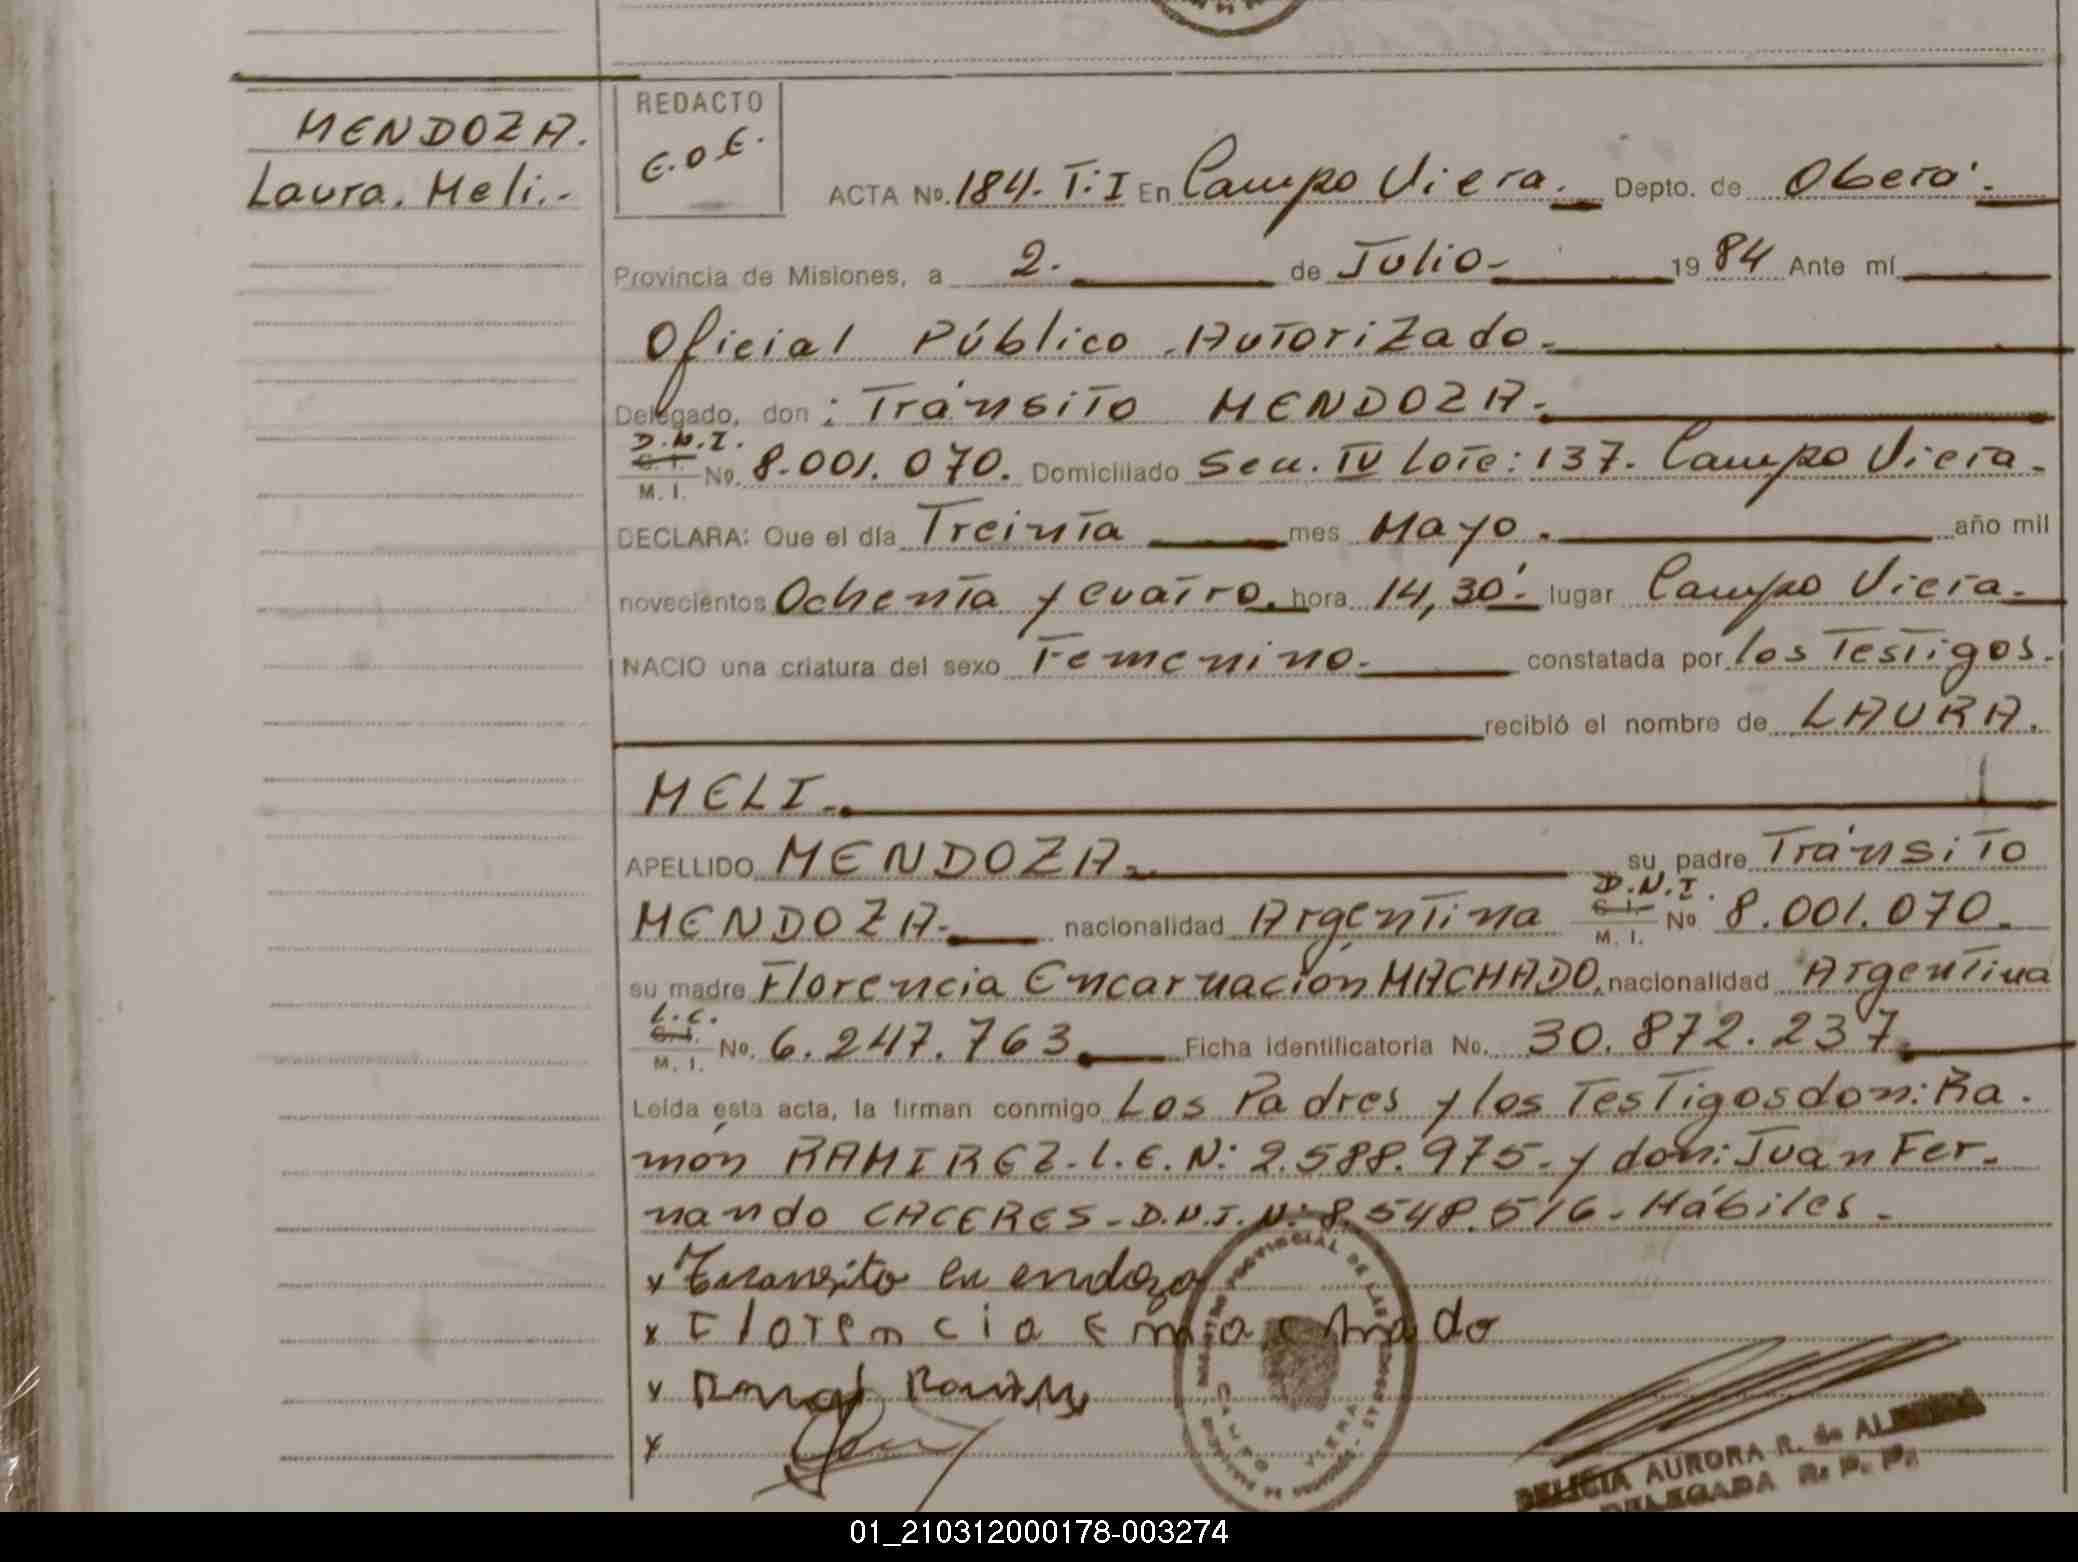 MENDOZA.
Laura. Meli.-
REDACTO
E.O.E.
ACTA No. 184. T:I En Campo Viera. Depto. de Oberá.
Provincia de Misiones, a 2. de Julio- 1984 Ante mí
Oficial Público Autorizado.
Delegado, don: Tránsito MENDOZA.
D.N.I.
C. I.
M. I.
No. 8.001.070. Domiciliado Secc. IV Lote: 137. Campo Viera.
DECLARA: Que el día Treinta mes Mayo. año mil
novecientos Ochenta y cuatro. hora 14,30'. lugar Campo Viera.
NACIO una criatura del sexo Femenino. constatada por los Testigos.
recibió el nombre de LAURA.
MELI.
APELLIDO MENDOZA. su padre Tránsito
MENDOZA. nacionalidad Argentina D.N.I. C. I. M. I. No 8.001.070.
su madre Florencia Encarnación MACHADO. nacionalidad Argentina
L.C.
C. I.
M. I.
No. 6.247.763. Ficha identificatoria No. 30.872.237.
Leída esta acta, la firman conmigo Los Padres y los Testigos don: Ra.
món RAMIREZ. L.E.N: 2.588.975. y don: Juan Fer-
nando CACERES - D.N.I.N: 8.548.516. Hábiles.
x Transito Mendoza
x Florencia E machado
x
x
PROVINCIAL DE LAS
CAMPO VIERA
DELICIA AURORA R. de
DELEGADA R. P. P.
01_210312000178-003274